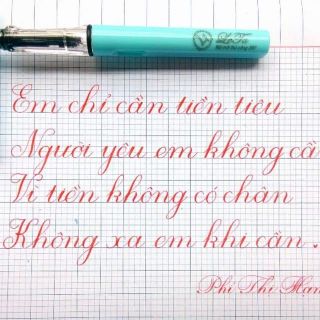 LeTa
Em chỉ cần tiền tiêu
Người yêu em không cầ
Vì tiền không có chân
Không xa em khi cần.
Phí Thị Hạn